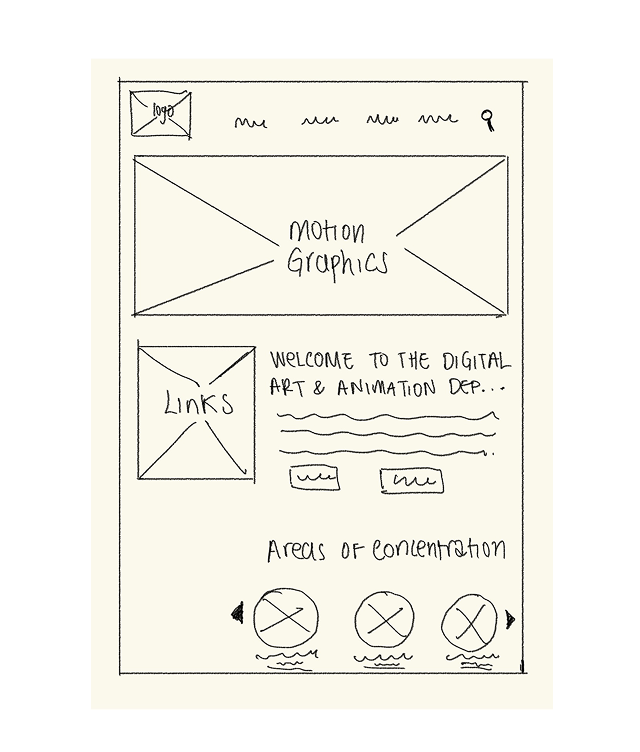 logo
Motion
Graphics
Links
WELCOME TO THE DIGITAL
ART & ANIMATION DEP...
Areas of concentration